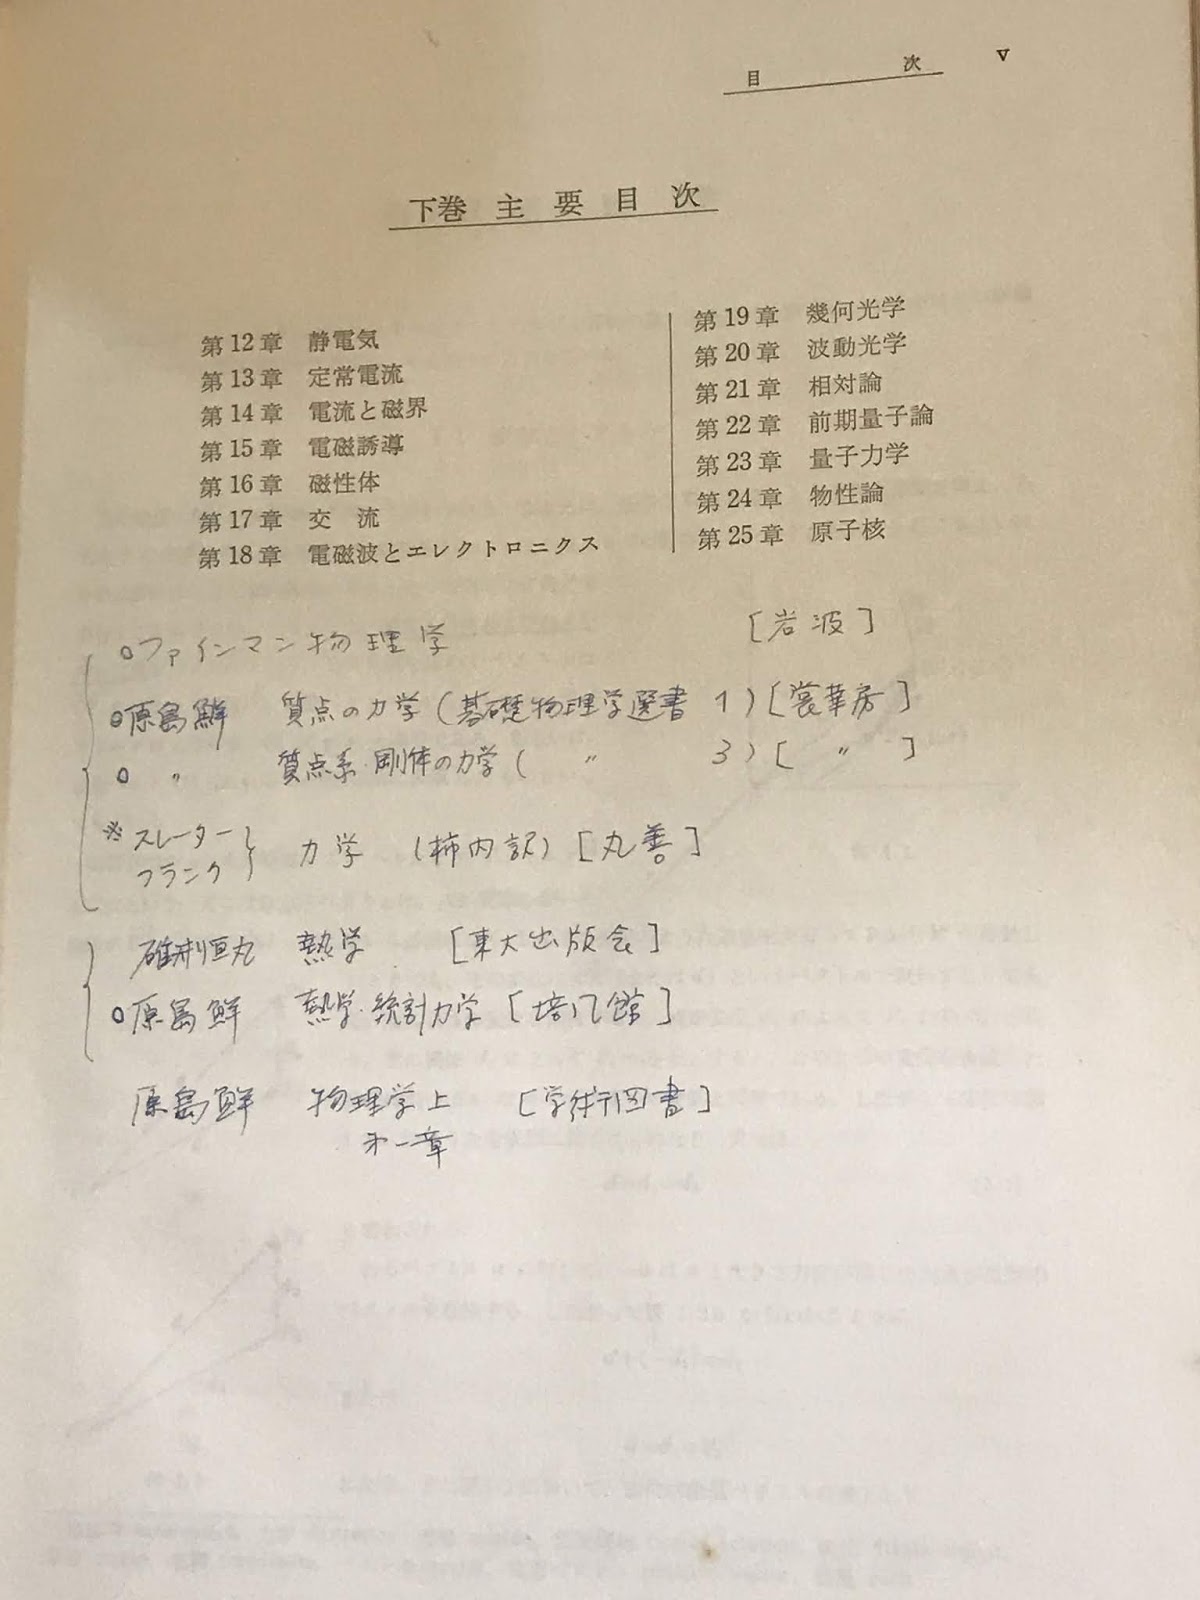 目 次 v
下巻 主要目次
第12章 静電気
第13章 定常電流
第14章 電流と磁界
第15章 電磁誘導
第16章 磁性体
第17章 交 流
第18章 電磁波とエレクトロニクス
第19章 幾何光学
第20章 波動光学
第21章 相対論
第22章 前期量子論
第23章 量子力学
第24章 物性論
第25章 原子核
○ファインマン物理学 [岩波]
○原島鮮 質点の力学(基礎物理学選書 1)[裳華房]
○ 〃 質点系・剛体の力学( 〃 3)[ 〃 ]
※スレーター
フランク } 力学 (柿内訳)[丸善]
碓井恒丸 熱学 [東大出版会]
○原島鮮 熱学・統計力学[培风館]
原島鮮 物理学上 [学術図書]
才一章